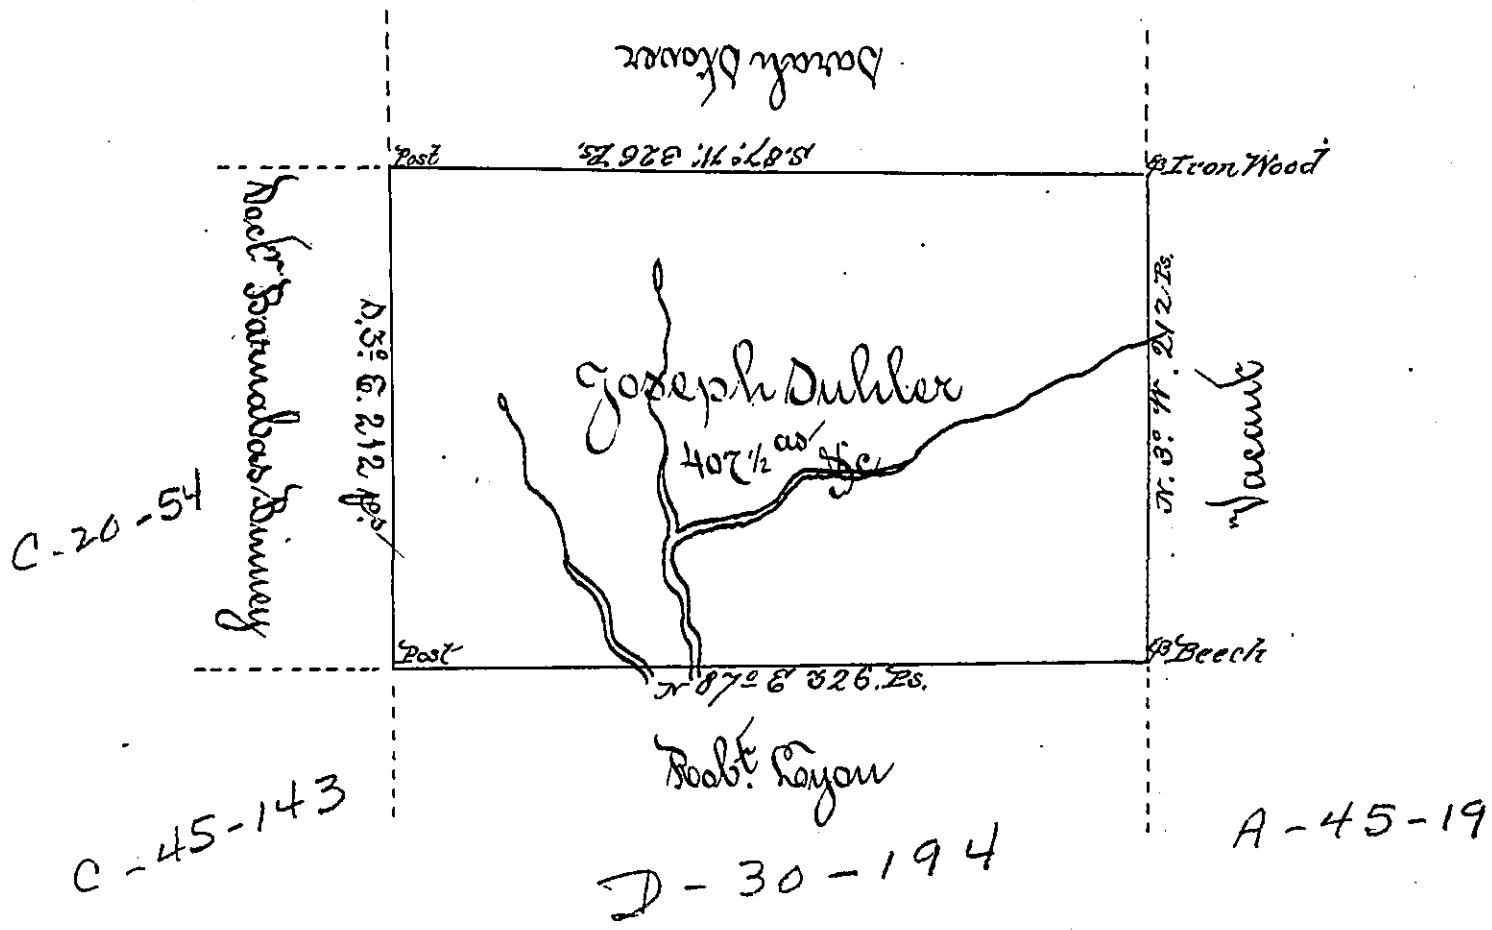 Sarah Stover
Post
S. 87° W. 326 Ps.
Iron Wood
Doctr. Barnabas Binney
S. 3° E. 212 Ps.
Joseph Duhler
407 1/2 as &c
N. 3° W. 212 Ps.
Vacant
C-20-54
Post
Beech
N 87° E 326. Ps.
Robt. Lyon
C-45-143
D-30-194
A-45-19